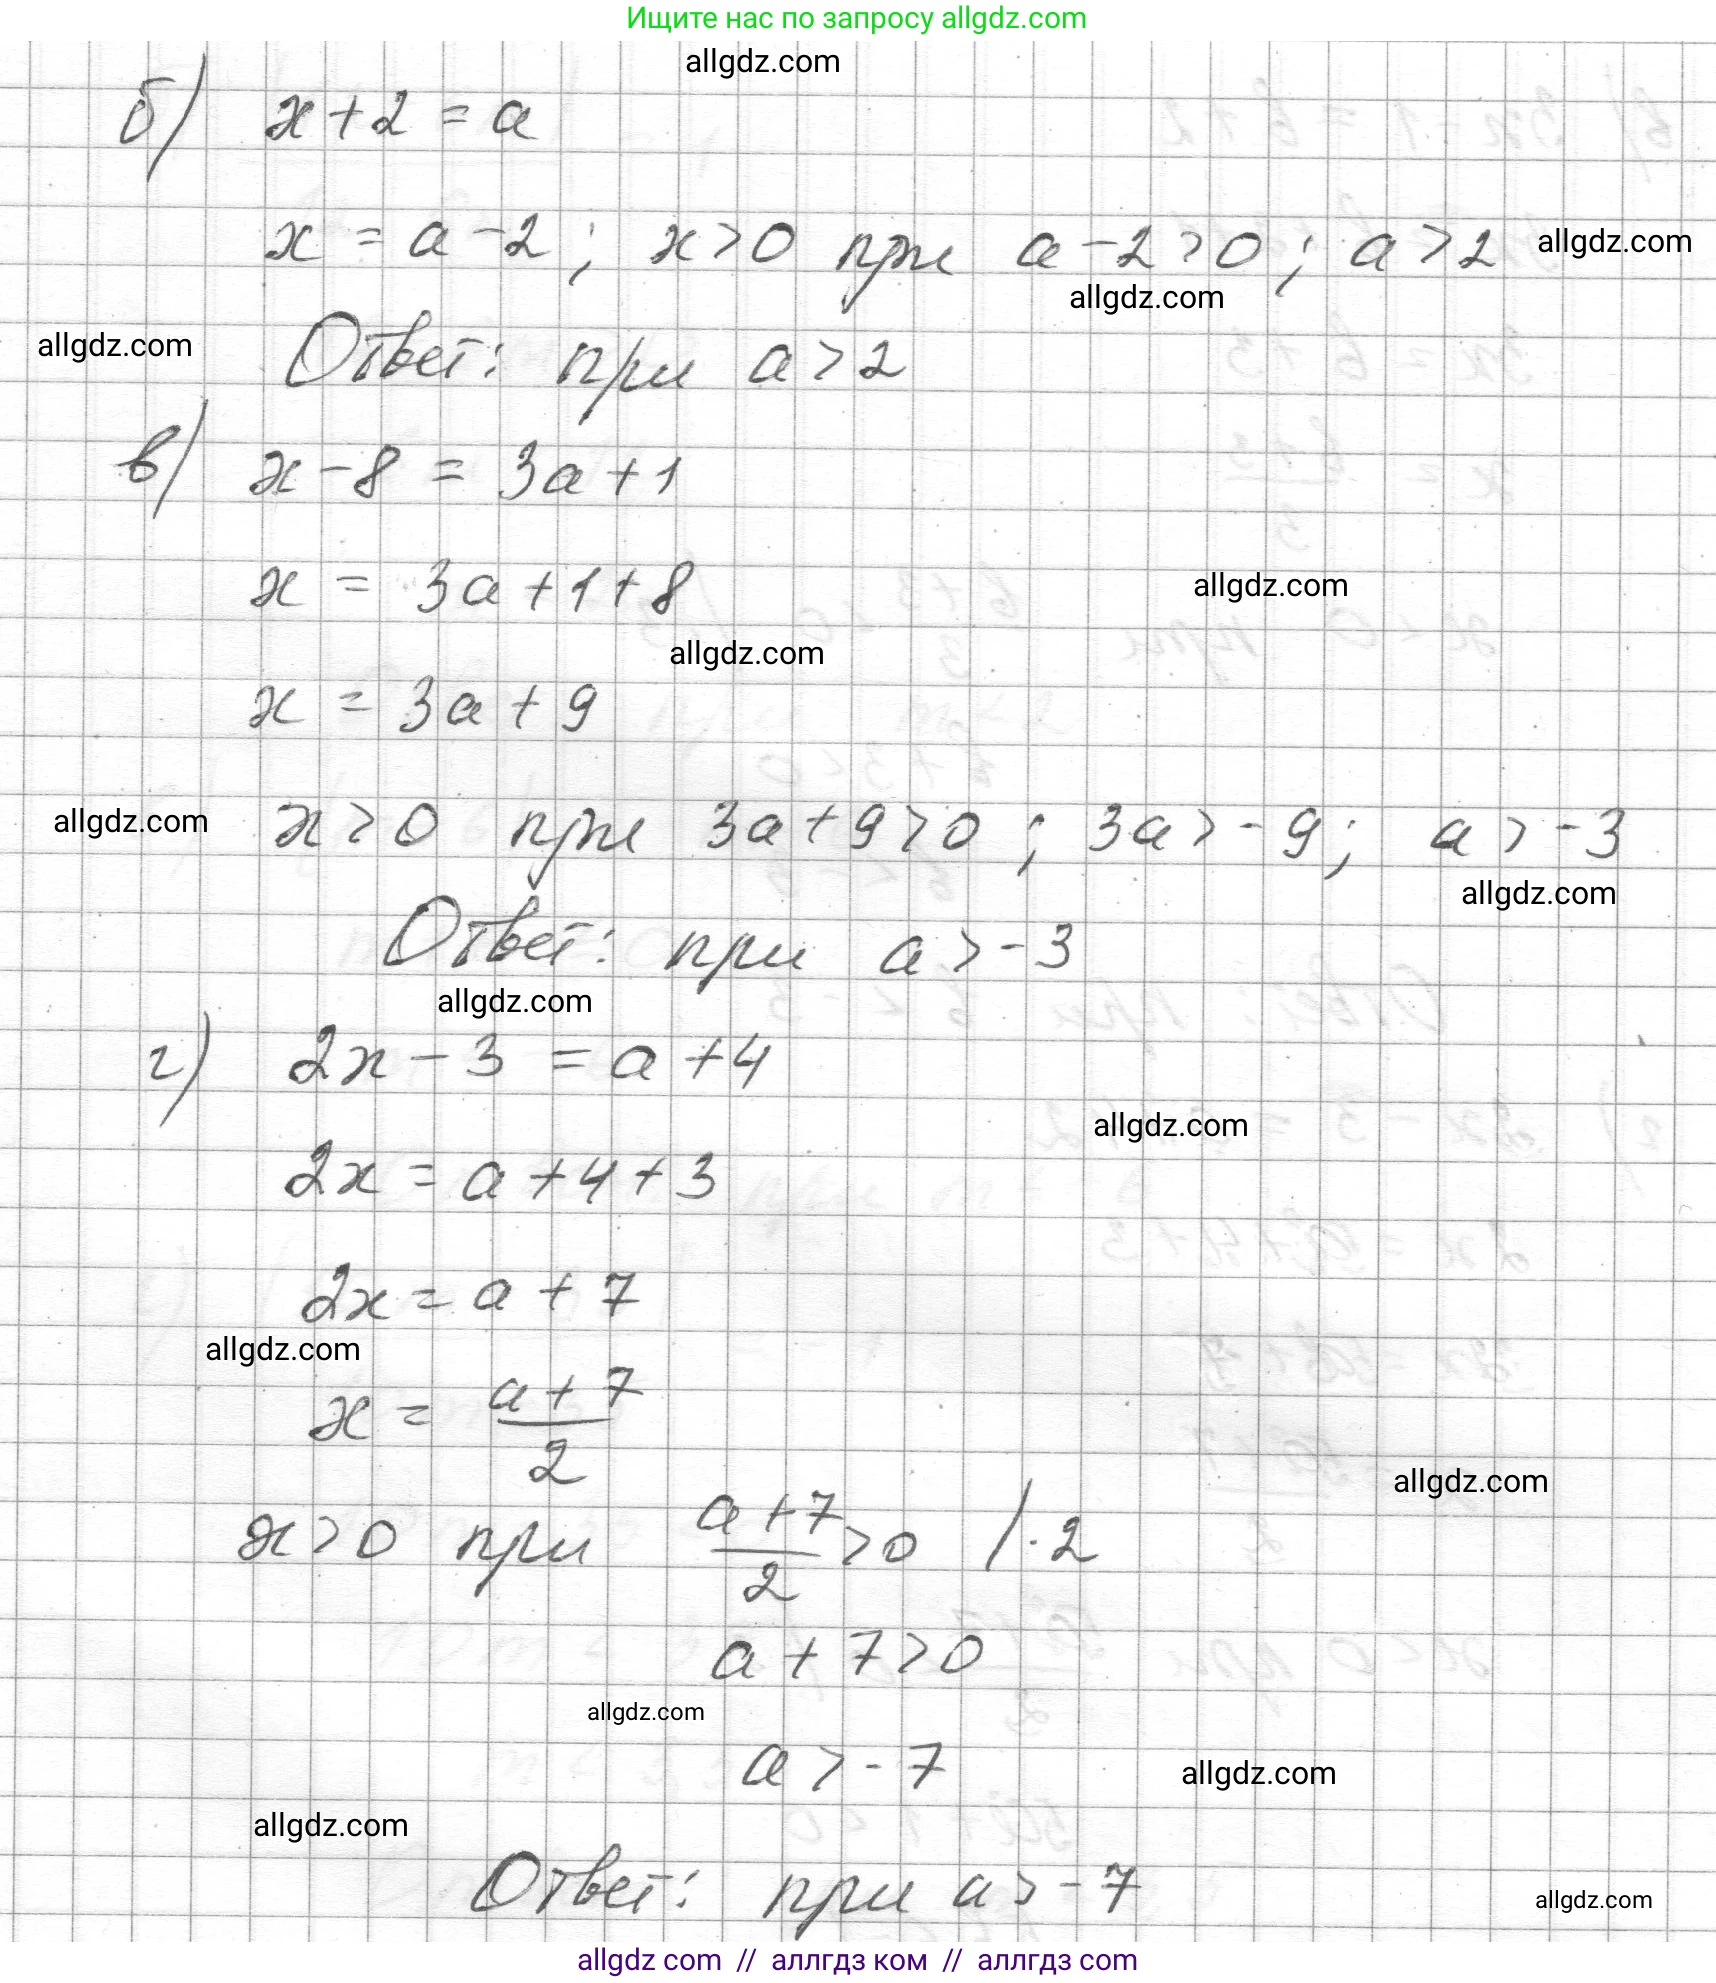 Ищите нас по запросу allgdz.com
allgdz.com
б) x + 2 = a
x = a - 2 ; x > 0 при a - 2 > 0 ; a > 2 allgdz.com
allgdz.com
allgdz.com Ответ: при a > 2
в) x - 8 = 3a + 1
x = 3a + 1 + 8 allgdz.com
allgdz.com
x = 3a + 9
allgdz.com x > 0 при 3a + 9 > 0 ; 3a > -9 ; a > -3
allgdz.com
Ответ: при a > -3
allgdz.com
г) 2x - 3 = a + 4
allgdz.com
2x = a + 4 + 3
2x = a + 7
allgdz.com
x = (a + 7)/2
allgdz.com
x > 0 при (a + 7)/2 > 0 | · 2
a + 7 > 0
allgdz.com
a > -7 allgdz.com
allgdz.com
Ответ: при a > -7 allgdz.com
allgdz.com // аллгдз ком // аллгдз com